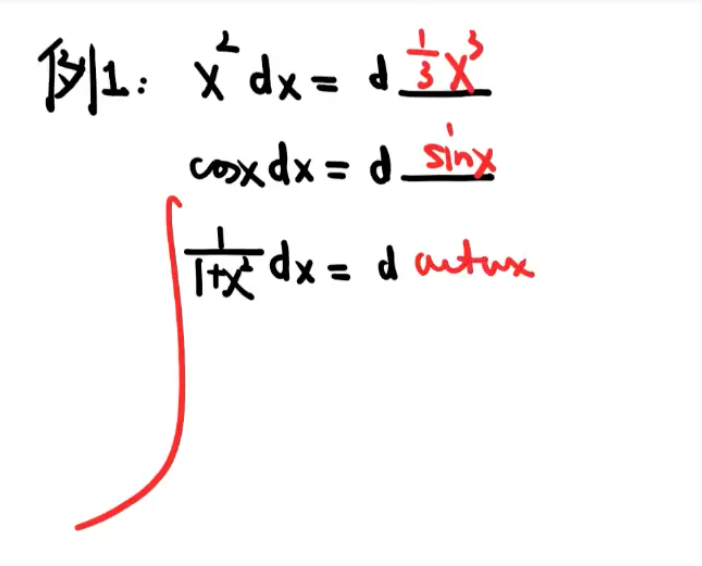 例1: x² dx = d 1/3 x³
cosx dx = d sinx
∫ 1/(1+x²) dx = d arctanx